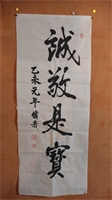 誠敬是寶
乙未元年